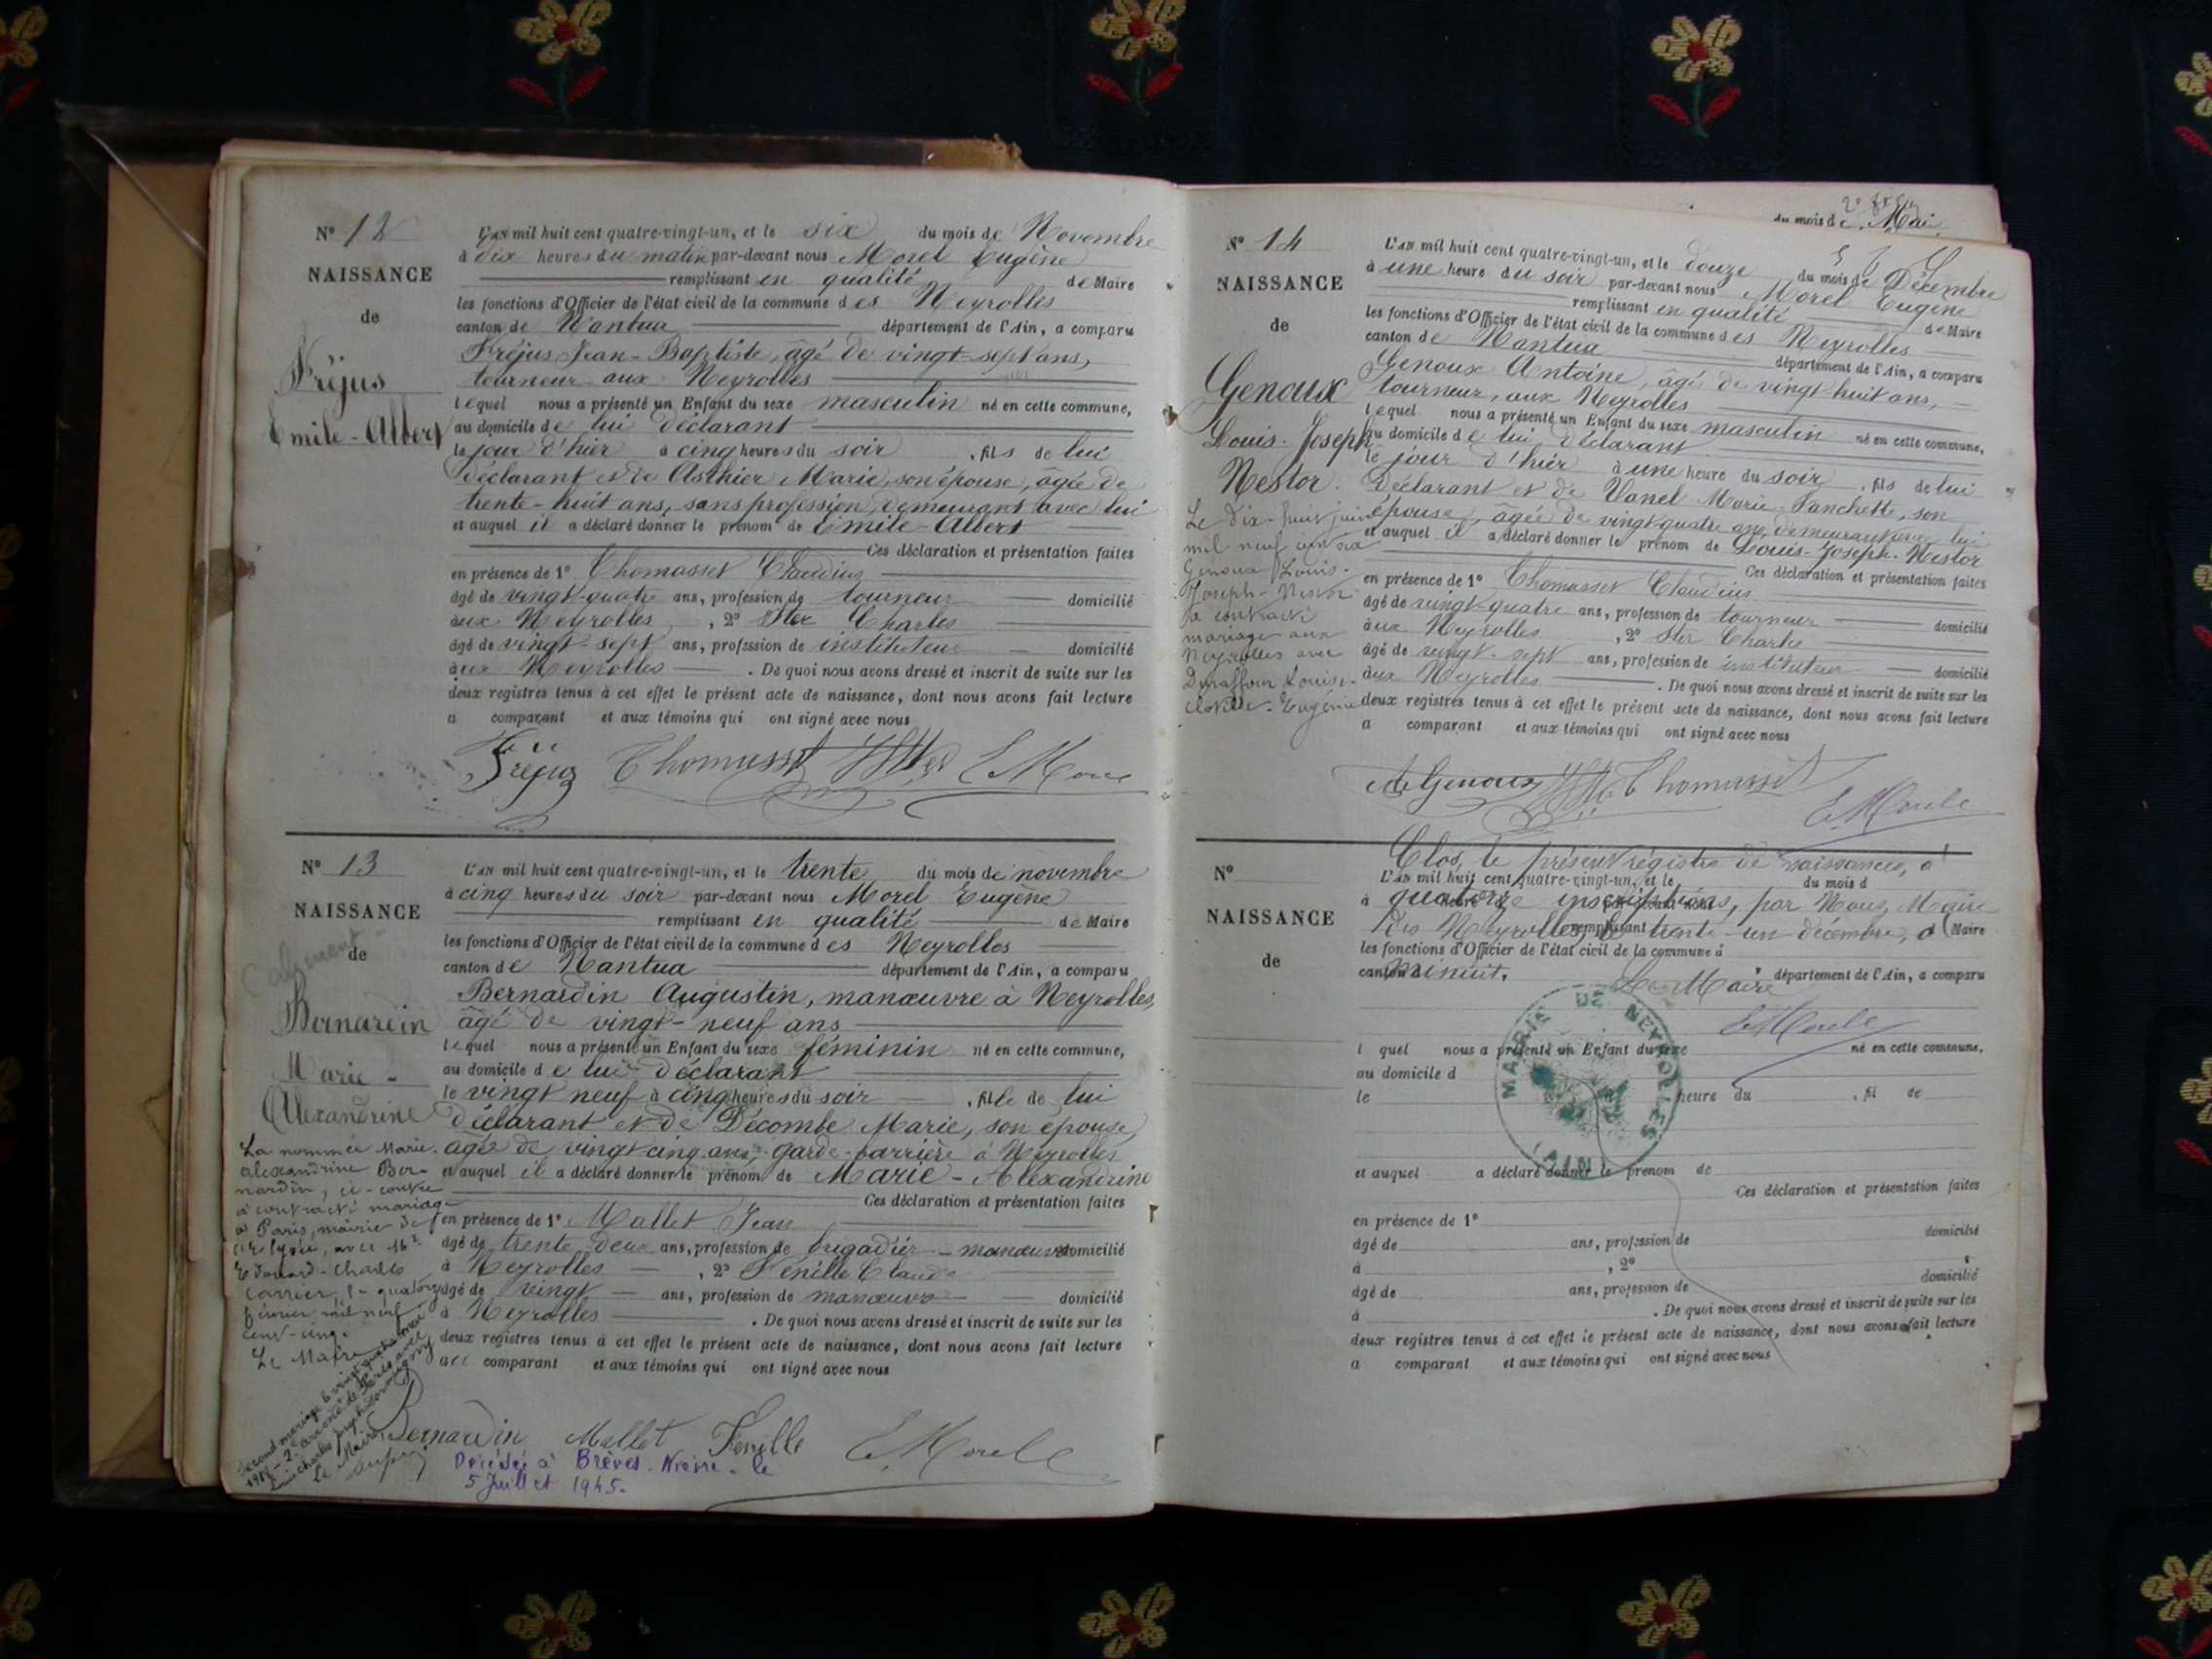 N° 12
NAISSANCE
de
Fréjus
Emile-Albert
L'AN mil huit cent quatre-vingt-un, et le six du mois de Novembre
à dix heures du matin par-devant nous Morel Eugène
remplissant en qualité de Maire
les fonctions d'Officier de l'état civil de la commune des Neyrolles
canton de Nantua département de l'Ain, a comparu
Fréjus Jean-Baptiste, âgé de vingt-sept ans,
tourneur aux Neyrolles
lequel nous a présenté un Enfant du sexe masculin né en cette commune,
au domicile de lui déclarant
le jour d'hier à cinq heures du soir, fils de lui
déclarant et de Asthier Marie, son épouse, âgée de
trente-huit ans, sans profession, demeurant avec lui
et auquel il a déclaré donner le prénom de Emile-Albert
Ces déclaration et présentation faites
en présence de 1° Thomasset Claudius
âgé de vingt-quatre ans, profession de tourneur domicilié
aux Neyrolles, 2° Ster Charles
âgé de vingt-sept ans, profession de instituteur domicilié
aux Neyrolles. De quoi nous avons dressé et inscrit de suite sur les
deux registres tenus à cet effet le présent acte de naissance, dont nous avons fait lecture
a comparant et aux témoins qui ont signé avec nous
Fréjus Thomasset Ster E. Morel
N° 13
NAISSANCE
de
Bernardin
Marie-
Alexandrine
La nommée Marie
alexandrine Ber-
nardin, ci-contre
a contracté mariage
à Paris, mairie de
l'Elysée, avec Mr
Edouard-Charles
Carrier, le quatorze
février mil neuf
cent-cinq.
Le Maire
Second mariage le vingt quatre mai
Le Maire
L'AN mil huit cent quatre-vingt-un, et le trente du mois de novembre
à cinq heures du soir par-devant nous Morel Eugène
remplissant en qualité de Maire
les fonctions d'Officier de l'état civil de la commune des Neyrolles
canton de Nantua département de l'Ain, a comparu
Bernardin Augustin, manœuvre à Neyrolles,
âgé de vingt-neuf ans
lequel nous a présenté un Enfant du sexe féminin né en cette commune,
au domicile de lui déclarant
le vingt neuf à cinq heures du soir, fille de lui
déclarant et de Décombe Marie, son épouse,
agée de vingt cinq ans, garde-barrière à Neyrolles
et auquel il a déclaré donner le prénom de Marie-Alexandrine
Ces déclaration et présentation faites
en présence de 1° Mallet Jean
âgé de trente deux ans, profession de brigadier-manœuvre domicilié
à Neyrolles, 2° Fenille Claude
âgé de vingt ans, profession de manœuvre domicilié
à Neyrolles. De quoi nous avons dressé et inscrit de suite sur les
deux registres tenus à cet effet le présent acte de naissance, dont nous avons fait lecture
au comparant et aux témoins qui ont signé avec nous
Bernardin Mallet Fenille E. Morel
Décédée à Brèves. Nièvre. le
5 Juillet 1945.
du mois de Mai
N° 14
NAISSANCE
de
Genoux
Louis-Joseph
Nestor.
Le dix-huit juin
mil neuf cent six
Genoux Louis-
Joseph-Nestor
a contracté
mariage aux
Neyrolles avec
Duraffour Louise-
Clotilde-Eugénie
L'AN mil huit cent quatre-vingt-un, et le douze du mois de Décembre
à une heure du soir par-devant nous Morel Eugène
remplissant en qualité de Maire
les fonctions d'Officier de l'état civil de la commune des Neyrolles
canton de Nantua département de l'Ain, a comparu
Genoux Antoine, âgé de vingt-huit ans,
tourneur, aux Neyrolles
lequel nous a présenté un Enfant du sexe masculin né en cette commune,
au domicile de lui, déclarant
le jour d'hier à une heure du soir, fils de lui
Déclarant et de Vanel Marie Fanchette, son
épouse, agée de vingt-quatre ans, demeurant avec lui
et auquel il a déclaré donner le prénom de Louis-Joseph-Nestor
Ces déclaration et présentation faites
en présence de 1° Thomasset Claudius
âgé de vingt-quatre ans, profession de tourneur domicilié
aux Neyrolles, 2° Ster Charles
âgé de vingt-sept ans, profession de instituteur domicilié
aux Neyrolles. De quoi nous avons dressé et inscrit de suite sur les
deux registres tenus à cet effet le présent acte de naissance, dont nous avons fait lecture
a comparant et aux témoins qui ont signé avec nous
A Genoux Ster Thomasset
E. Morel
Clos, le présent registre de naissances, à
quatorze inscriptions, par Nous, Maire
des Neyrolles, le trente-un décembre, à
minuit.
Le Maire
E. Morel
MAIRIE DE NEYROLLES
(AIN)
N°
NAISSANCE
de
L'AN mil huit cent quatre-vingt-un, et le du mois d
à heure par-devant nous
remplissant Maire
les fonctions d'Officier de l'état civil de la commune d
canton d département de l'Ain, a comparu
l quel nous a présenté un Enfant du sexe né en cette commune,
au domicile d
le heure du, fi de
et auquel a déclaré donner le prénom de
Ces déclaration et présentation faites
en présence de 1°
âgé de ans, profession de domicilié
à, 2°
âgé de ans, profession de domicilié
à. De quoi nous avons dressé et inscrit de suite sur les
deux registres tenus à cet effet le présent acte de naissance, dont nous avons fait lecture
a comparant et aux témoins qui ont signé avec nous